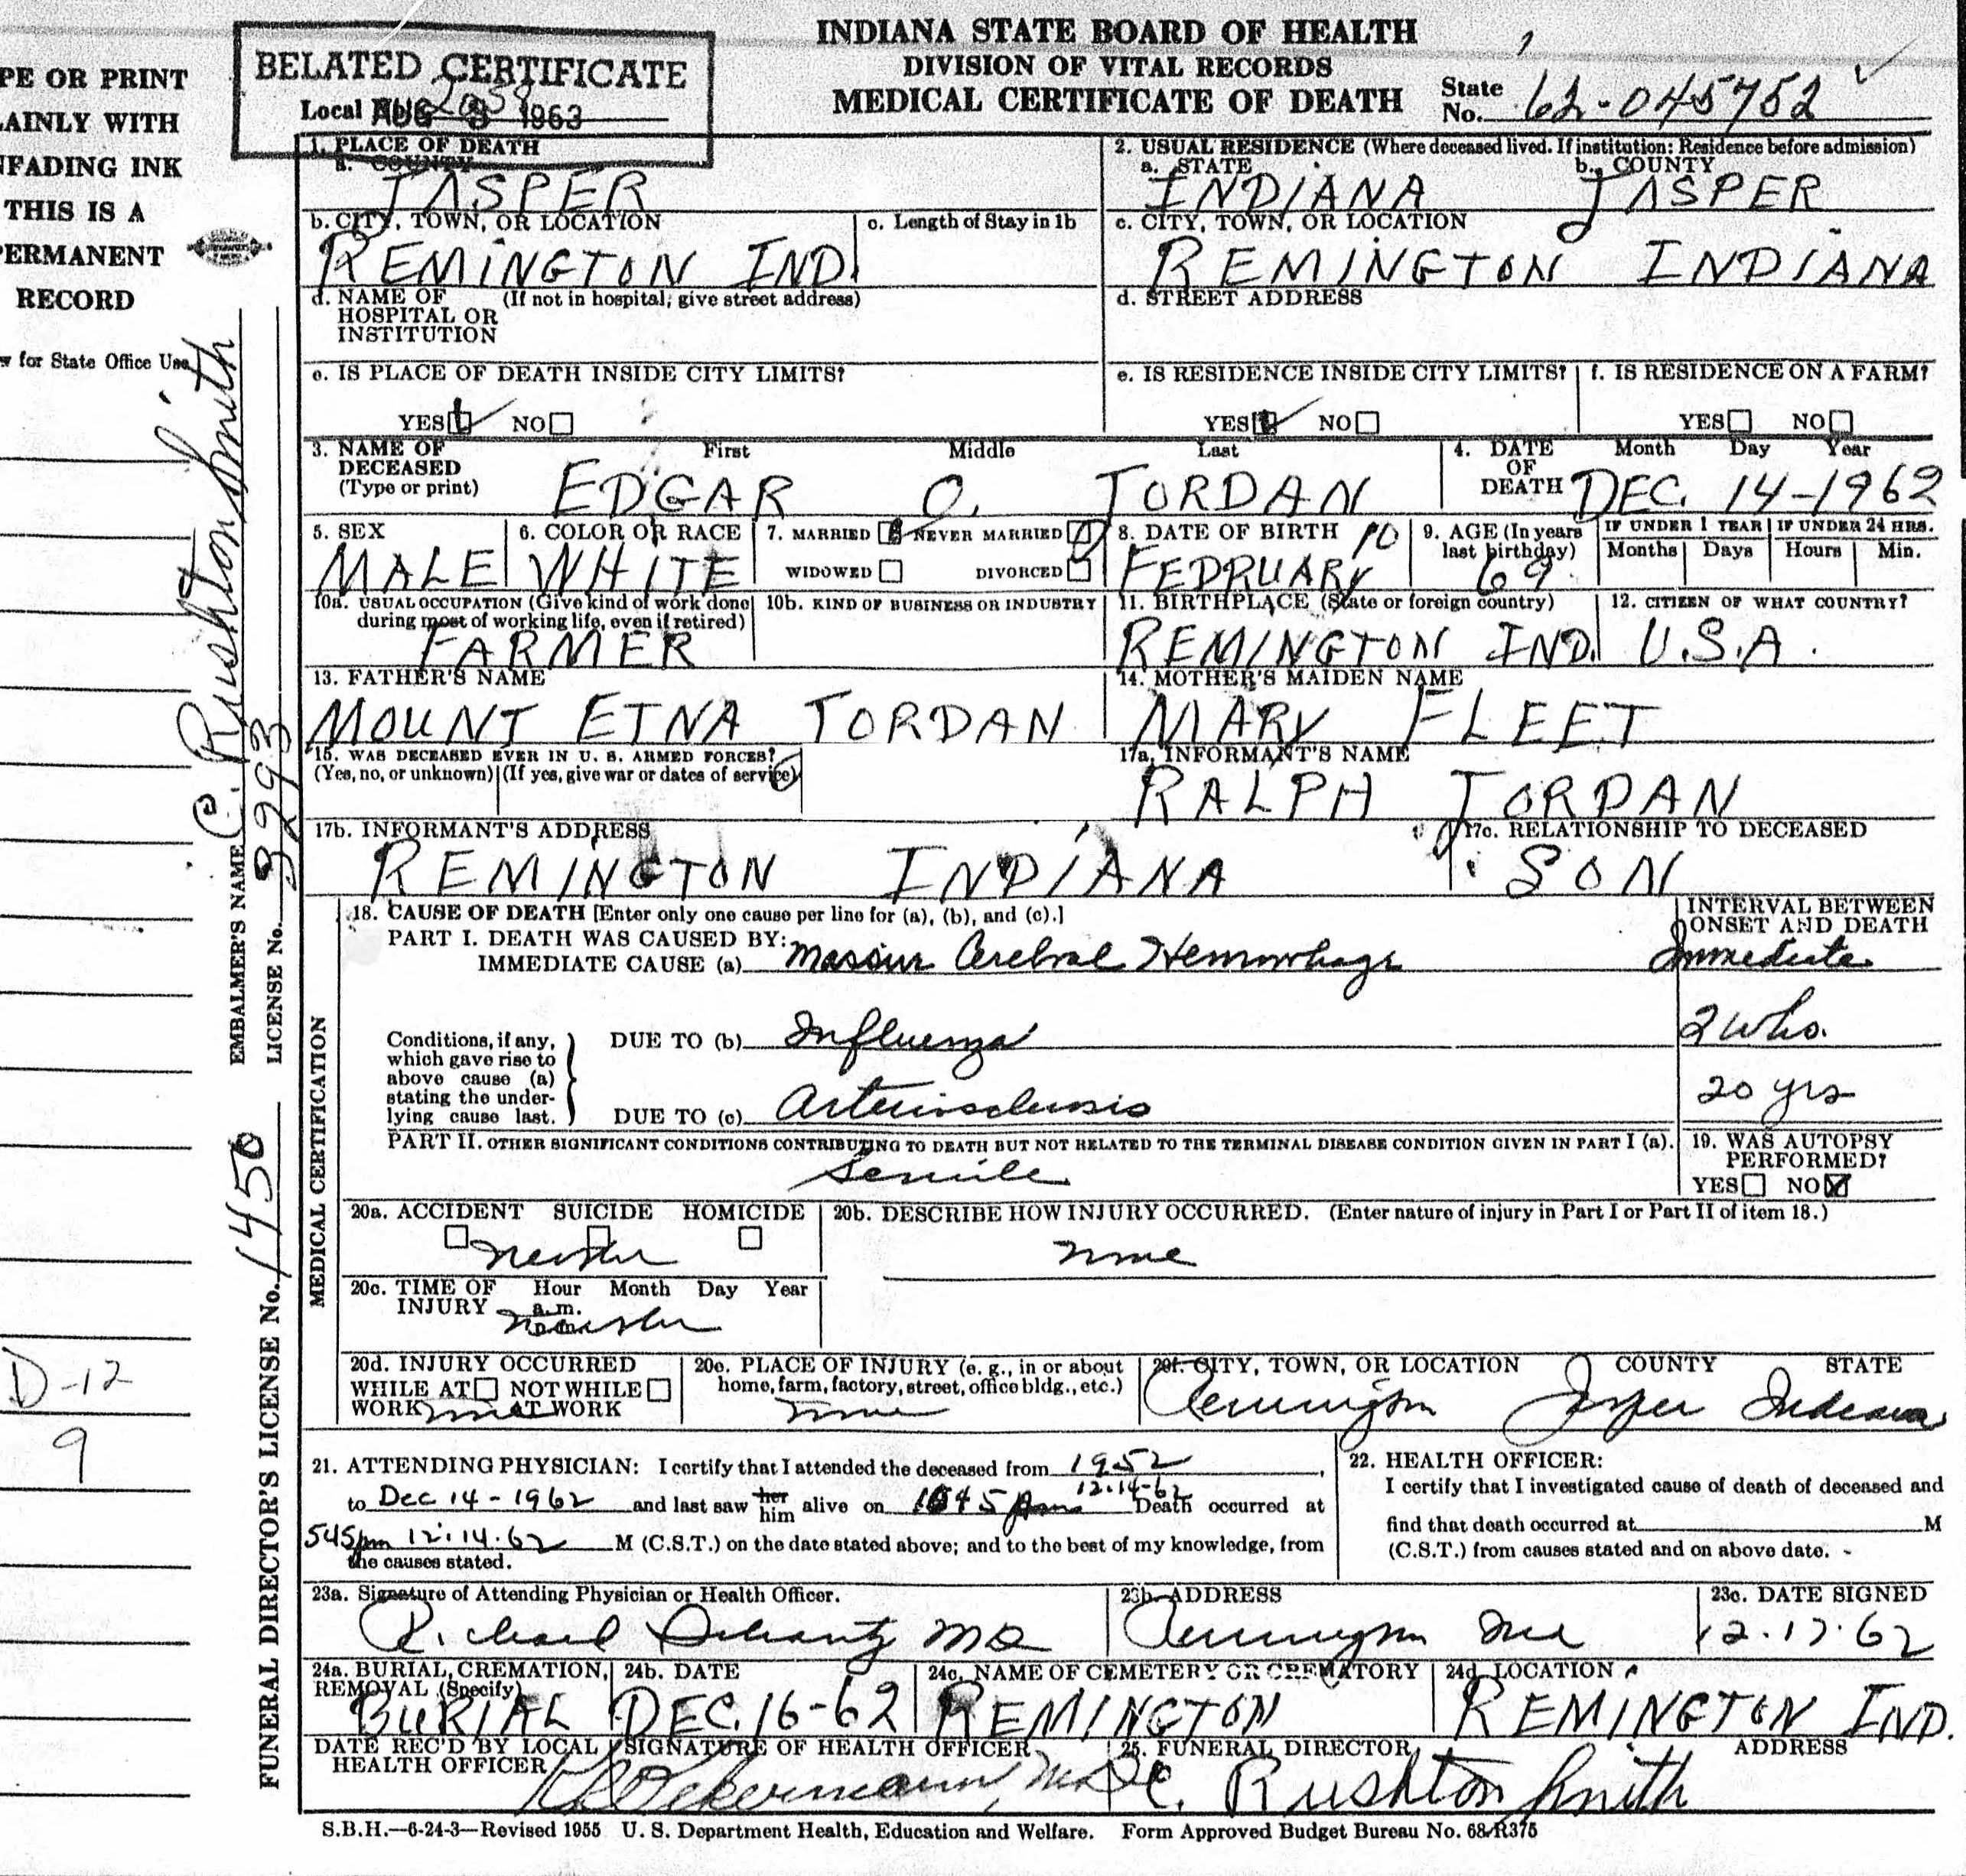 INDIANA STATE BOARD OF HEALTH
DIVISION OF VITAL RECORDS
MEDICAL CERTIFICATE OF DEATH
State No. 62-045752
BELATED CERTIFICATE
Local AUG 1963
PE OR PRINT
AINLY WITH
NFADING INK
THIS IS A
PERMANENT
RECORD
w for State Office Use
EMBALMER'S NAME C. Rushton Smith
LICENSE No. 3293
FUNERAL DIRECTOR'S LICENSE No. 1450
D-12
9
1. PLACE OF DEATH
a. COUNTY
JASPER
2. USUAL RESIDENCE (Where deceased lived. If institution: Residence before admission)
a. STATE b. COUNTY
INDIANA JASPER
b. CITY, TOWN, OR LOCATION c. Length of Stay in 1b
REMINGTON IND.
c. CITY, TOWN, OR LOCATION
REMINGTON INDIANA
d. NAME OF (If not in hospital, give street address)
HOSPITAL OR
INSTITUTION
d. STREET ADDRESS
e. IS PLACE OF DEATH INSIDE CITY LIMITS?
YES NO
e. IS RESIDENCE INSIDE CITY LIMITS? f. IS RESIDENCE ON A FARM?
YES NO YES NO
3. NAME OF DECEASED (Type or print) First Middle Last
EDGAR O. JORDAN
4. DATE OF DEATH Month Day Year
DEC. 14-1962
5. SEX
MALE
6. COLOR OR RACE
WHITE
7. MARRIED NEVER MARRIED
WIDOWED DIVORCED
8. DATE OF BIRTH 10
FEDRUARY
9. AGE (In years last birthday)
69
IF UNDER 1 YEAR IF UNDER 24 HRS.
Months Days Hours Min.
10a. USUAL OCCUPATION (Give kind of work done during most of working life, even if retired)
FARMER
10b. KIND OF BUSINESS OR INDUSTRY
11. BIRTHPLACE (State or foreign country)
REMINGTON IND.
12. CITIZEN OF WHAT COUNTRY?
U.S.A.
13. FATHER'S NAME
MOUNT ETNA JORDAN
14. MOTHER'S MAIDEN NAME
MARY FLEET
15. WAS DECEASED EVER IN U. S. ARMED FORCES?
(Yes, no, or unknown) (If yes, give war or dates of service)
17a. INFORMANT'S NAME
RALPH JORDAN
17b. INFORMANT'S ADDRESS
REMINGTON INDIANA
17c. RELATIONSHIP TO DECEASED
SON
MEDICAL CERTIFICATION
18. CAUSE OF DEATH [Enter only one cause per line for (a), (b), and (c).]
INTERVAL BETWEEN ONSET AND DEATH
PART I. DEATH WAS CAUSED BY:
IMMEDIATE CAUSE (a) Massive Cerebral Hemorrhage Immediate
Conditions, if any, which gave rise to above cause (a) stating the underlying cause last.
DUE TO (b) Influenza 2 wks.
DUE TO (c) Arteriosclerosis 20 yrs
PART II. OTHER SIGNIFICANT CONDITIONS CONTRIBUTING TO DEATH BUT NOT RELATED TO THE TERMINAL DISEASE CONDITION GIVEN IN PART I (a).
Senile
19. WAS AUTOPSY PERFORMED?
YES NO
20a. ACCIDENT SUICIDE HOMICIDE
Neither
20b. DESCRIBE HOW INJURY OCCURRED. (Enter nature of injury in Part I or Part II of item 18.)
none
20c. TIME OF INJURY Hour Month Day Year
a.m.
20d. INJURY OCCURRED
WHILE AT WORK NOT WHILE AT WORK
20e. PLACE OF INJURY (e. g., in or about home, farm, factory, street, office bldg., etc.)
none
20f. CITY, TOWN, OR LOCATION COUNTY STATE
Remington Jasper Indiana
21. ATTENDING PHYSICIAN: I certify that I attended the deceased from 1952,
to Dec 14 - 1962 and last saw her him alive on 12-14-62 Death occurred at
545pm 12.14.62 M (C.S.T.) on the date stated above; and to the best of my knowledge, from
the causes stated.
22. HEALTH OFFICER:
I certify that I investigated cause of death of deceased and
find that death occurred at M
(C.S.T.) from causes stated and on above date.
23a. Signature of Attending Physician or Health Officer.
Richard Schantz MD
23b. ADDRESS
Remington Ind
23c. DATE SIGNED
12.17.62
24a. BURIAL, CREMATION, REMOVAL (Specify)
BURIAL
24b. DATE
DEC. 16-62
24c. NAME OF CEMETERY OR CREMATORY
REMINGTON
24d. LOCATION
REMINGTON IND.
DATE REC'D BY LOCAL HEALTH OFFICER
SIGNATURE OF HEALTH OFFICER
Ockermann, MD
25. FUNERAL DIRECTOR ADDRESS
C. Rushton Smith
S.B.H.—6-24-3—Revised 1955 U. S. Department Health, Education and Welfare. Form Approved Budget Bureau No. 68-R375